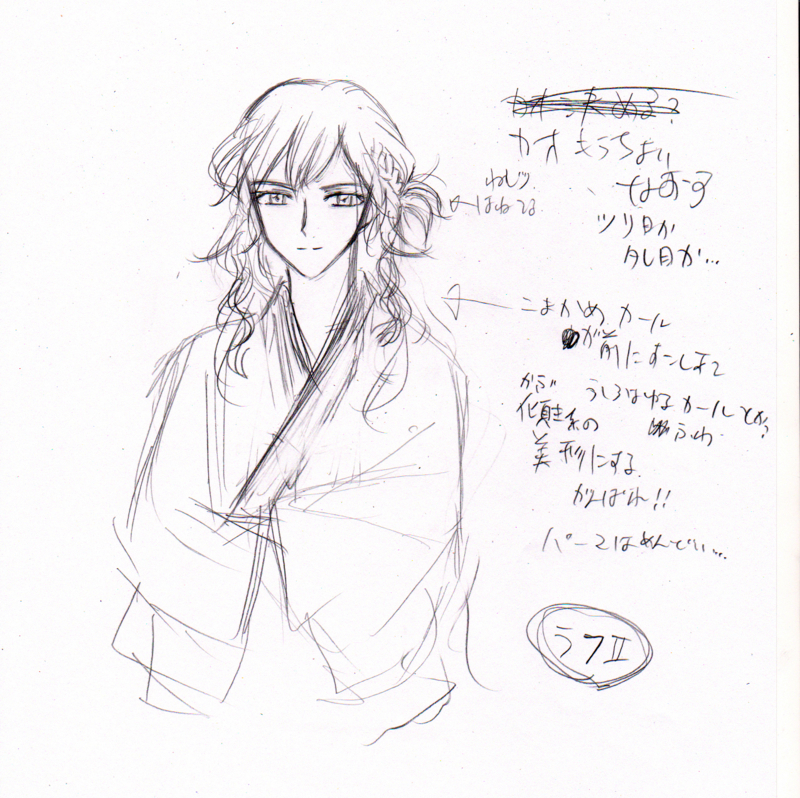 カオ もうちょい
なおす
ねじり
はねてる
ツリ目か
タレ目か…
こまかめ カール
が前にすこしあって
うしろはゆるカールとか?
ふわ
かぶ
傾き系の
美形にする
がんばれ!!
パースはめんでい…
ラフII